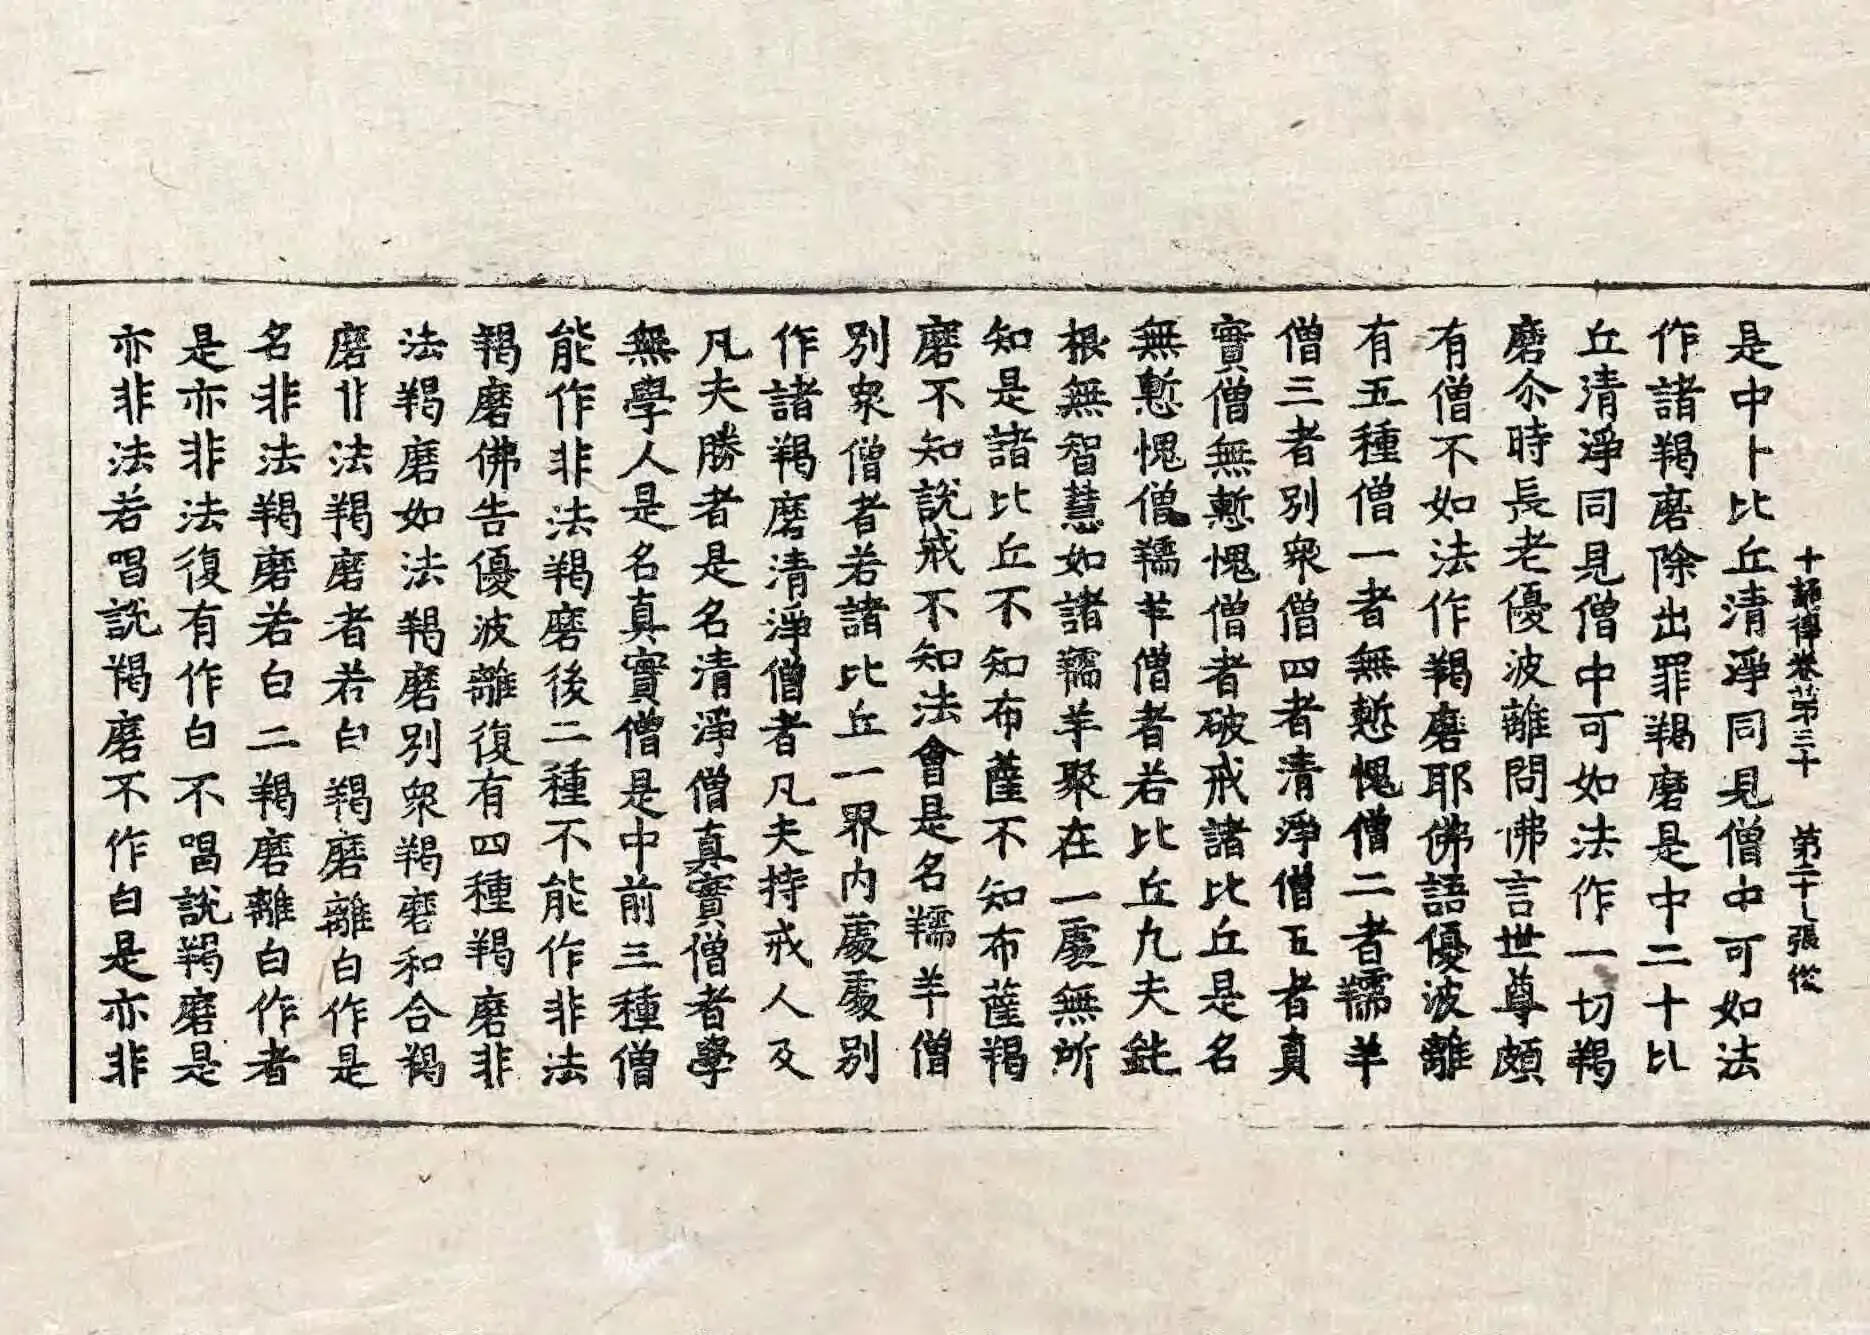 十誦律卷第三十　第二十七張　從
是中十比丘清淨同見僧中可如法
作諸羯磨除出罪羯磨是中二十比
丘清淨同見僧中可如法作一切羯
磨尒時長老優波離問佛言世尊頗
有僧不如法作羯磨耶佛語優波離
有五種僧一者無慙愧僧二者羺羊
僧三者別衆僧四者清淨僧五者真
實僧無慙愧僧者破戒諸比丘是名
無慙愧僧羺羊僧者若比丘凡夫鈍
根無智慧如諸羺羊聚在一處無所
知是諸比丘不知布薩不知布薩羯
磨不知說戒不知法會是名羺羊僧
別衆僧者若諸比丘一界内處處別
作諸羯磨清淨僧者凡夫持戒人及
凡夫勝者是名清淨僧真實僧者學
無學人是名真實僧是中前三種僧
能作非法羯磨後二種不能作非法
羯磨佛告優波離復有四種羯磨非
法羯磨如法羯磨別衆羯磨和合羯
磨非法羯磨者若白羯磨離白作是
名非法羯磨若白二羯磨離白作者
是亦非法復有作白不唱說羯磨是
亦非法若唱說羯磨不作白是亦非